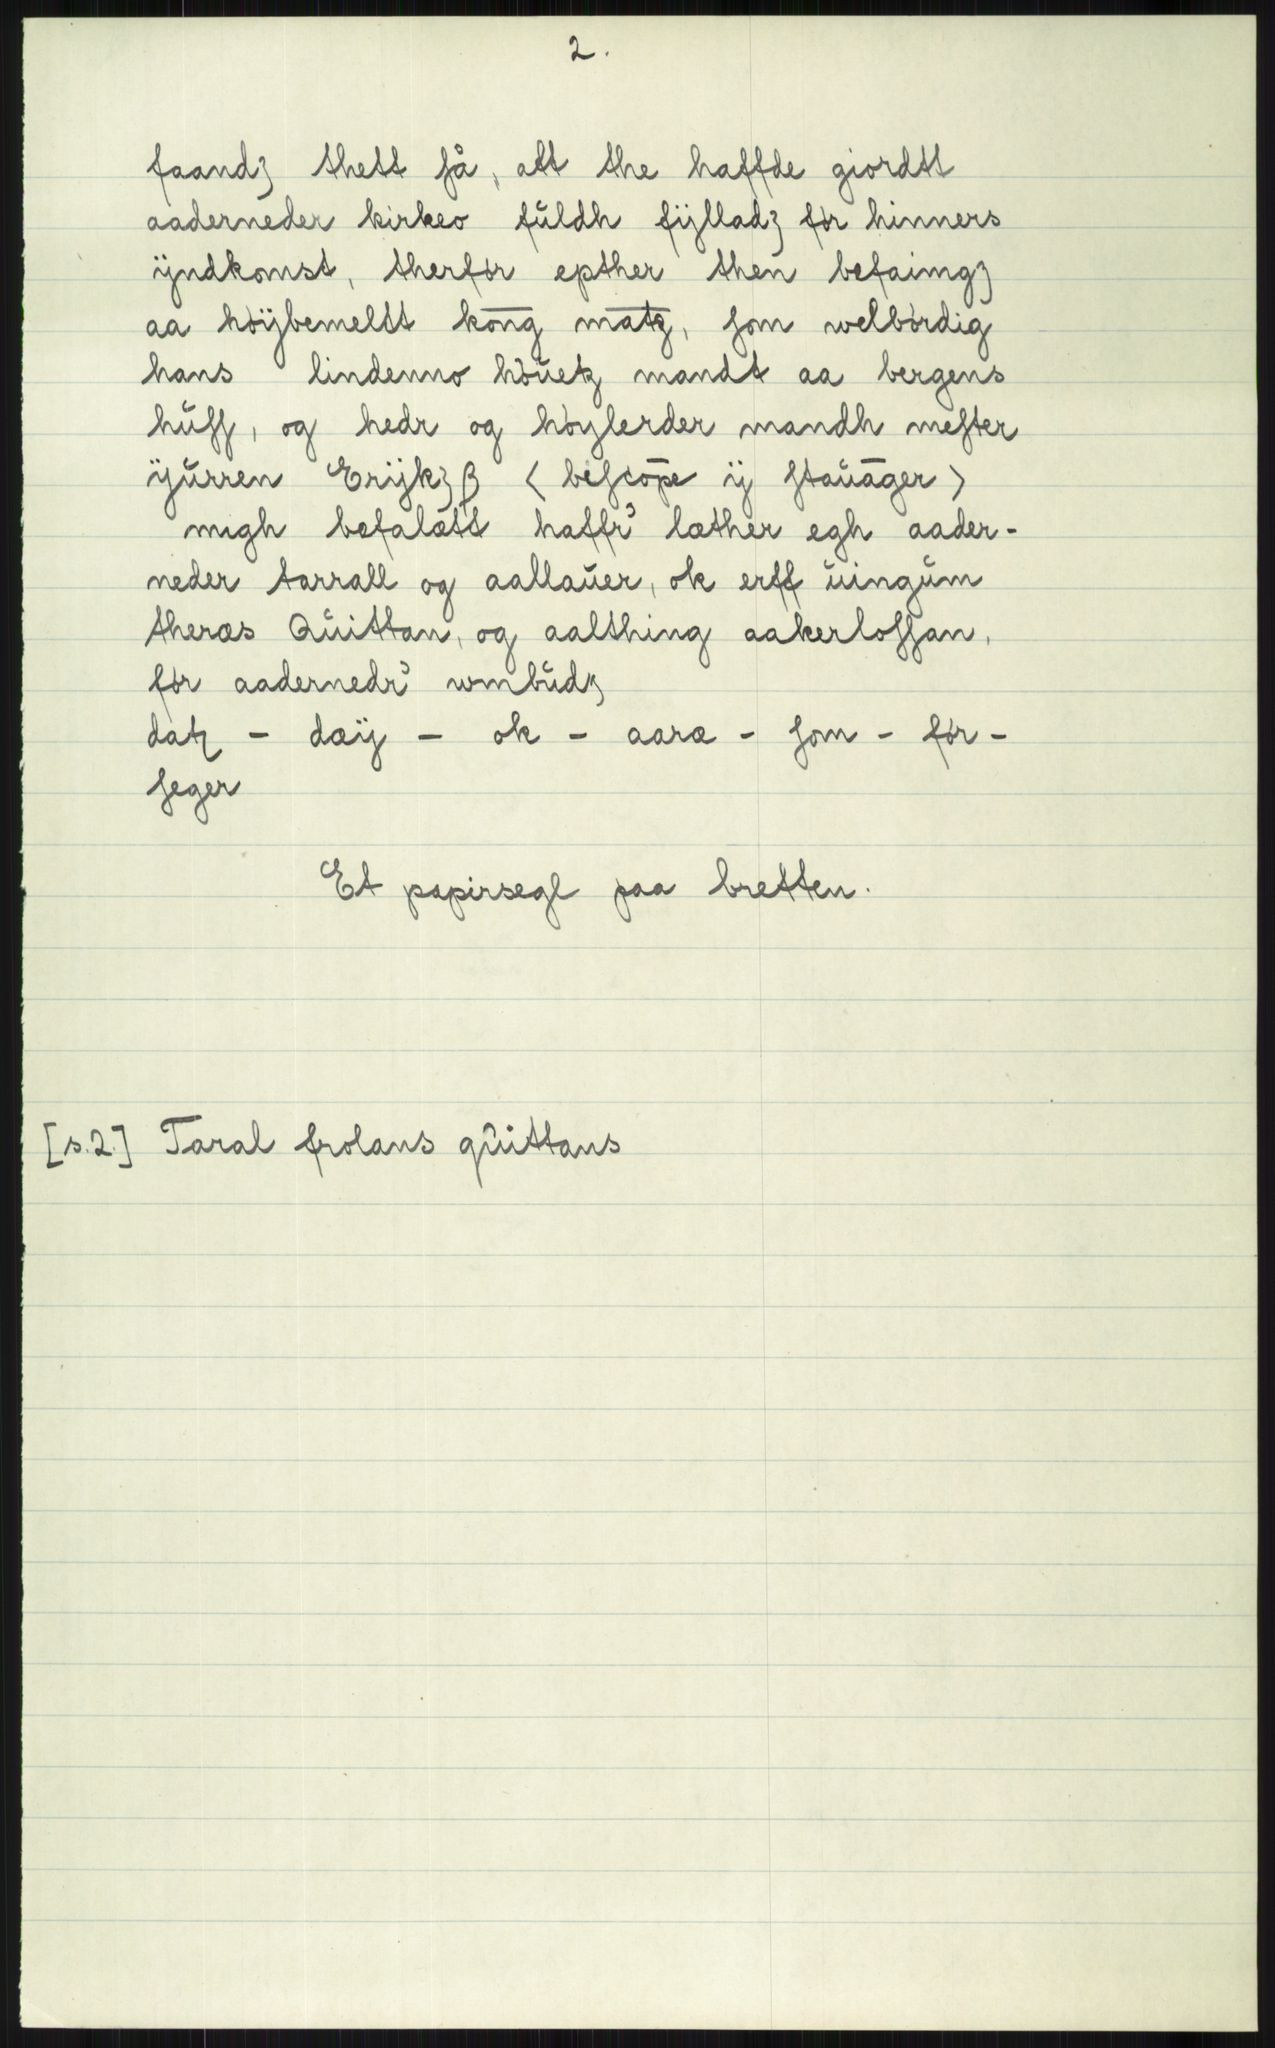 2.
faandʒ thett ſå, att the haffde giordtt
aaderneder kirkeo fŭldh fÿlladʒ før hinners
ÿndkomst, therfør epther then befaimgʒ
aa høÿbemeltt kōng māty, ſom welbørdig
hans lindenno høŭetz mandt aa bergens
hŭſſ, og hedr og høylerder mandh meſter
ÿŭrren Erijkʒβ &lt;beſcōpe ÿ ſtaŭāger&gt;
migh befalætt haffr³ læther egh aader-
neder tarrall og aallaŭer, ok erff ŭingŭm
theræs Qŭittan, og aalthing aakerloſſan,
før aadernedr³ wmbŭdʒ
datz - dæÿ - ok - aaræ - ſom - før -
ſeger
Et papirsegl paa bretten.
[s.2.] Taral frolans qŭittans